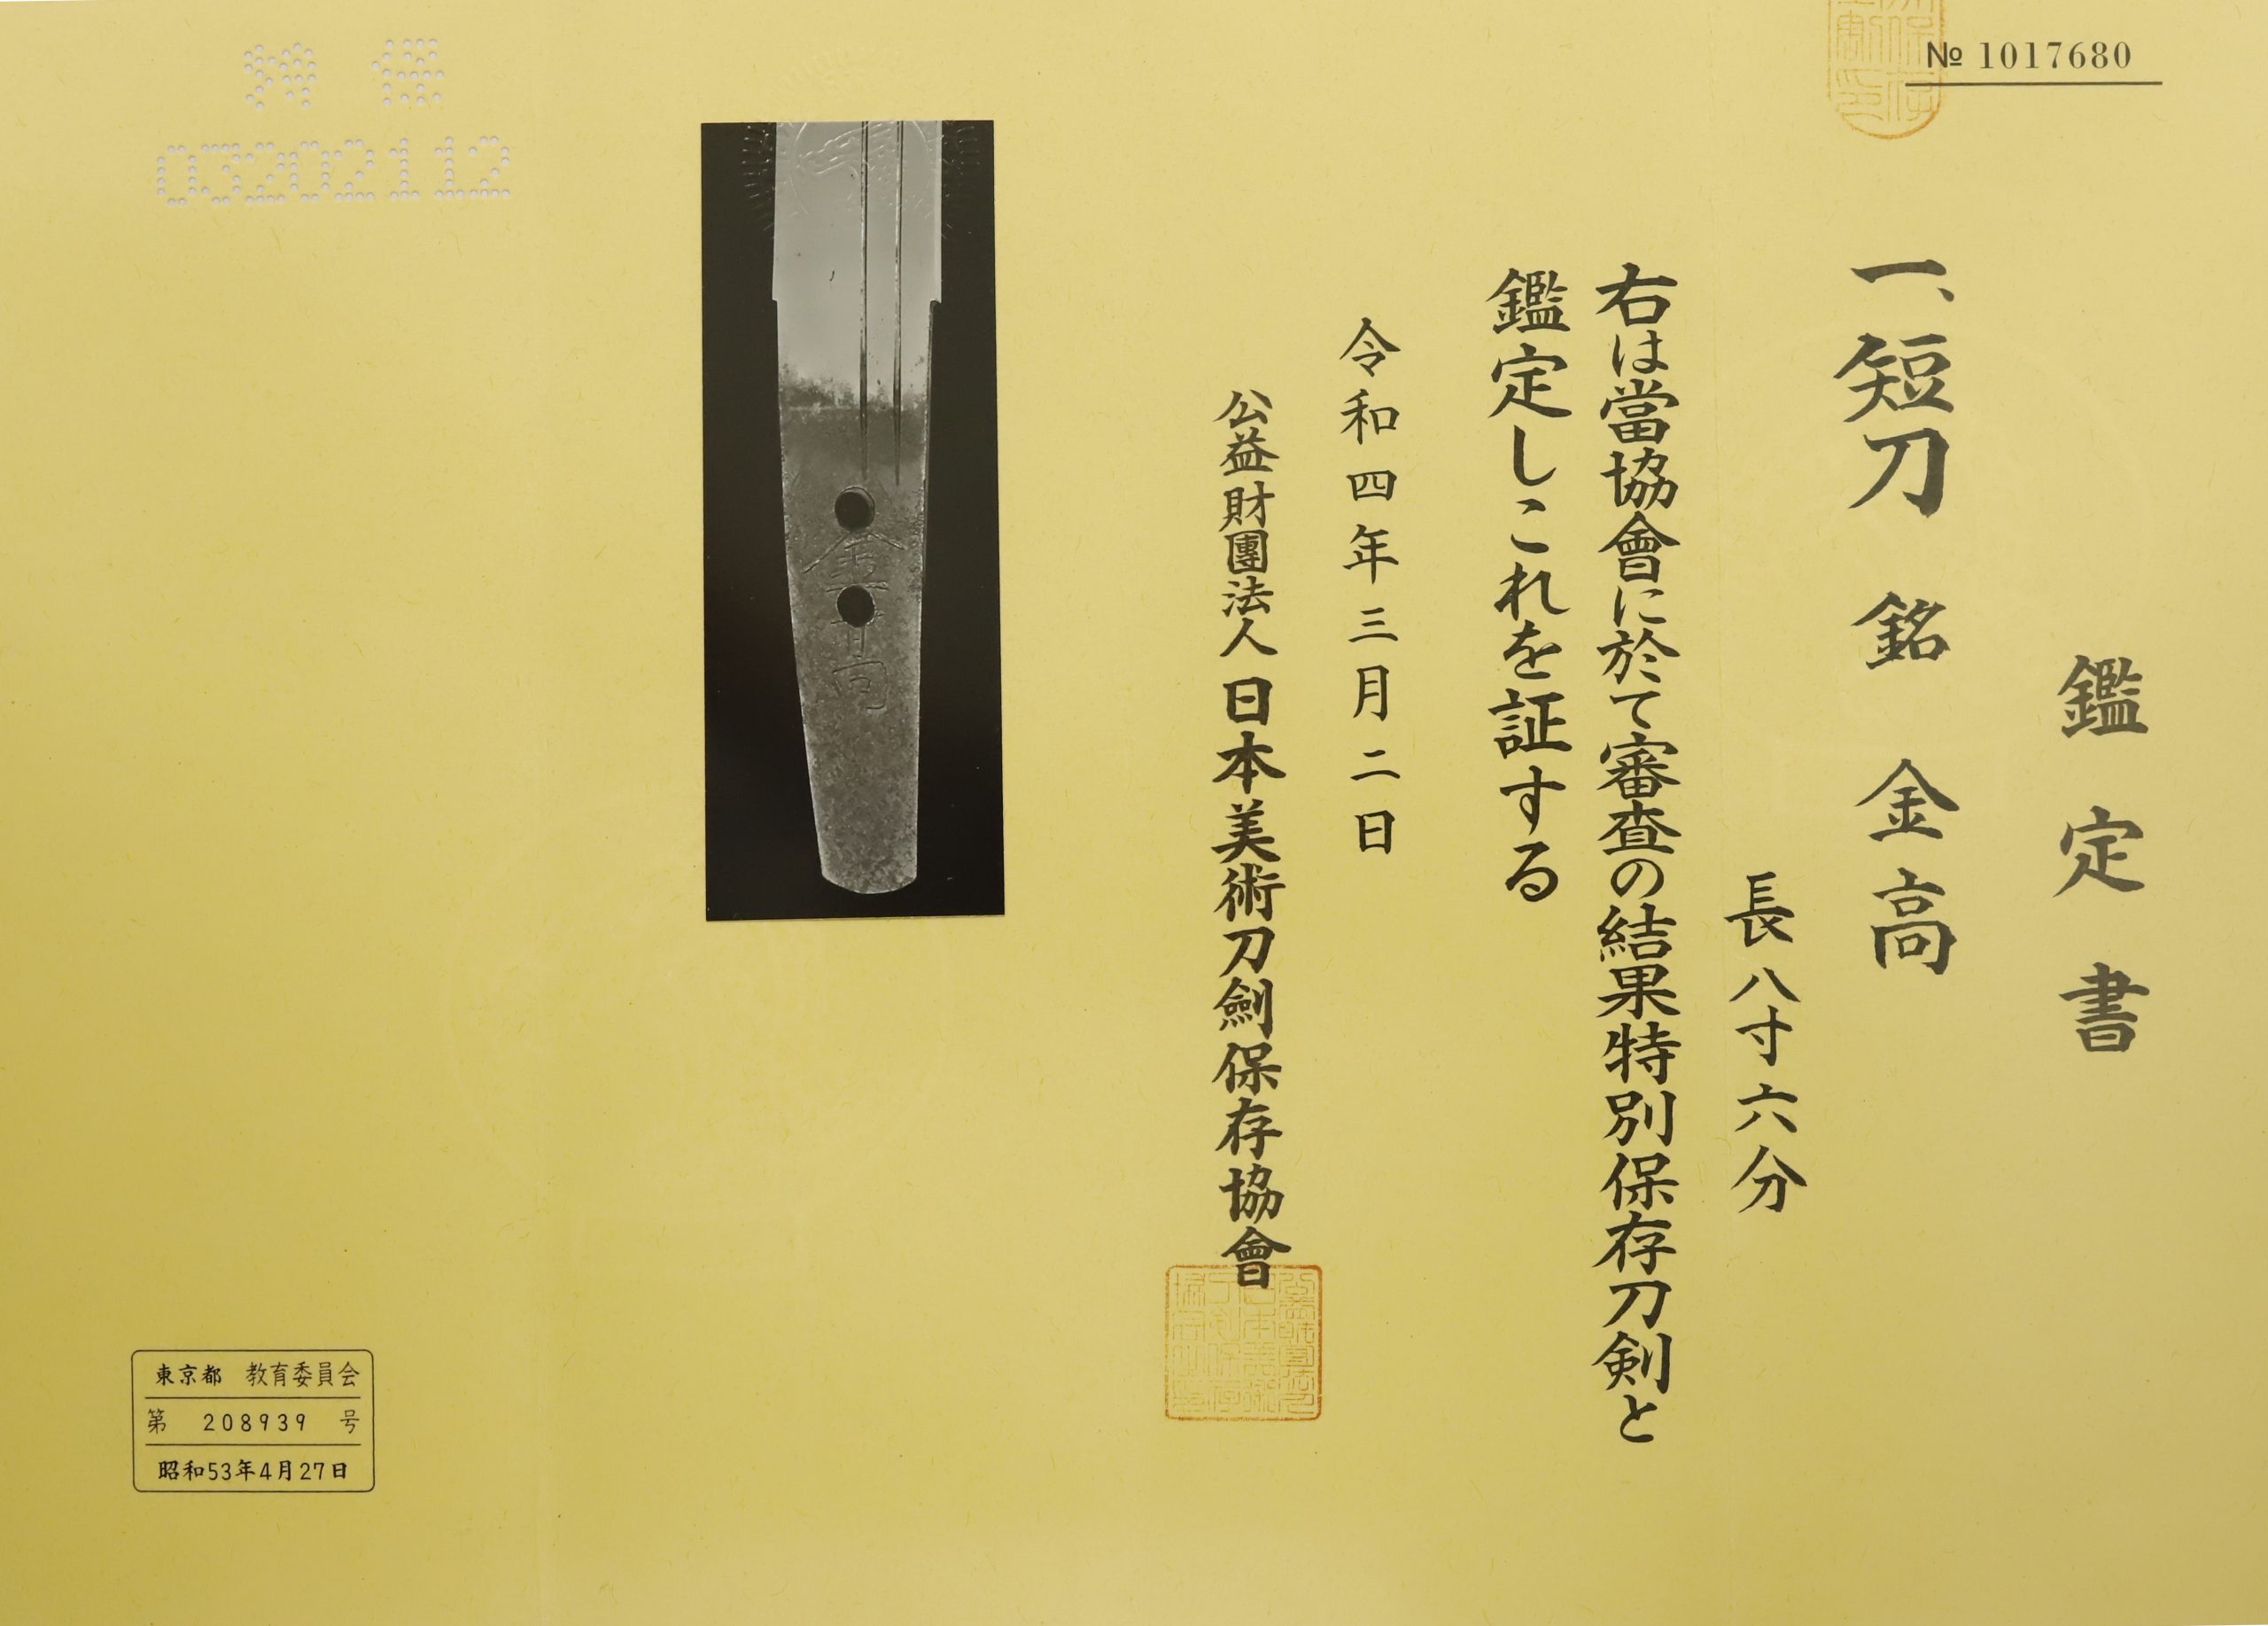 № 1017680
鑑定書
一、短刀 銘 金高
長八寸六分
右は當協會に於て審査の結果特別保存刀剣と
鑑定しこれを証する
令和四年三月二日
公益財團法人 日本美術刀劍保存協會
金高
特保
03202112
東京都 教育委員会
第 208939 号
昭和53年4月27日